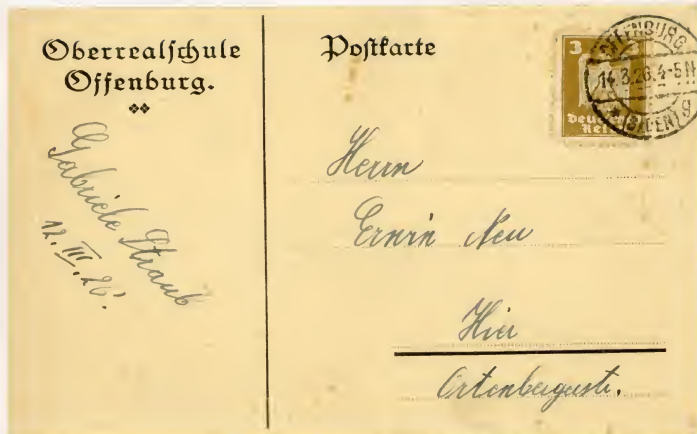 Oberrealschule
Offenburg.
Gabriele Straub
12. III. 26.
Postkarte
3 3
Deutsches
Reich
OFFENBURG
14.3.26.4-5N
(BADEN) g
Herrn
Erwin Neu
Hier
Ortenbergerstr.